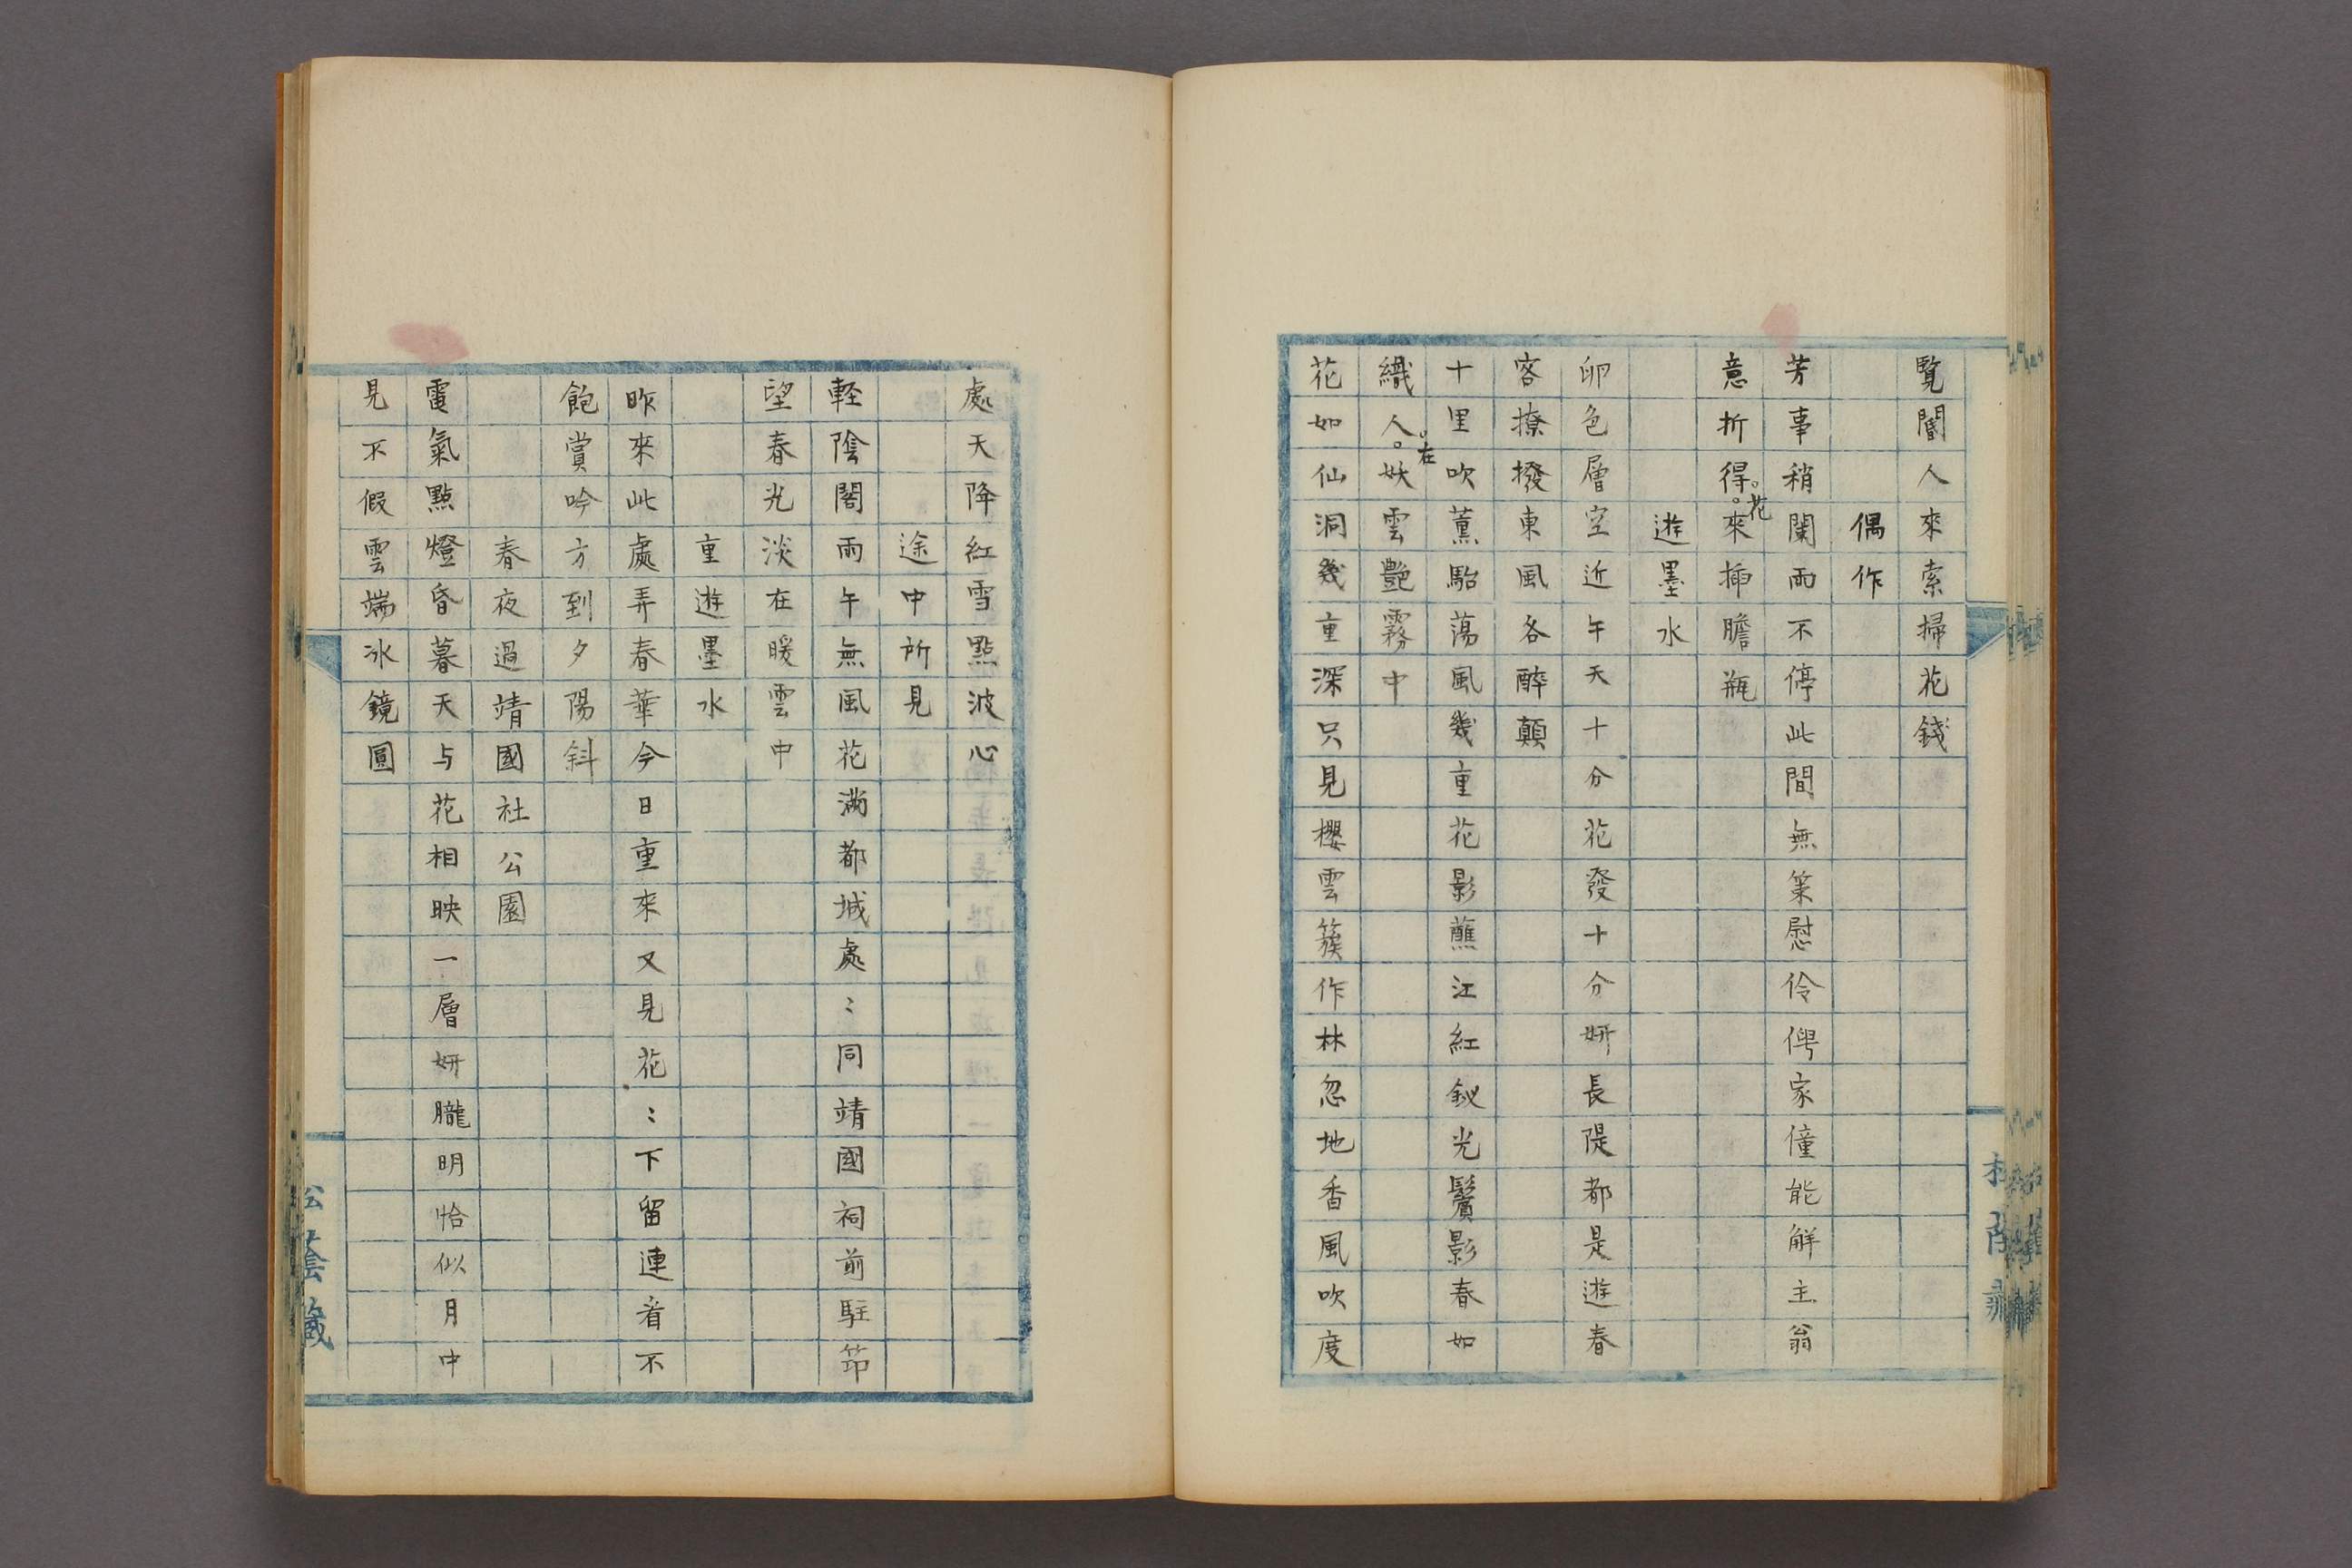 覧閽人來索掃花錢
偶作
芳事稍闌雨不停此間無策慰伶俜家僮能解主翁
意折得。花來揷膽瓶
遊墨水
卵色層空近午天十分花發十分妍長隄都是遊春
客撩撥東風各醉顛
十里吹薫駘蕩風幾重花影蘸江紅釵光鬢影春如
織人。在妖雲艶霧中
花如仙洞幾重深只見櫻雲簇作林忽地香風吹度
處天降紅雪點波心
途中所見
軽陰閣雨午無風花滿都城處〻同靖國祠前駐筇
望春光淡在暖雲中
重遊墨水
昨來此處弄春華今日重來又見花〻下留連看不
飽賞吟方到夕陽斜
春夜過靖國社公園
電氣點燈昏暮天与花相映一層妍朧明恰似月中
見不假雲端冰鏡圓
松蔭藏